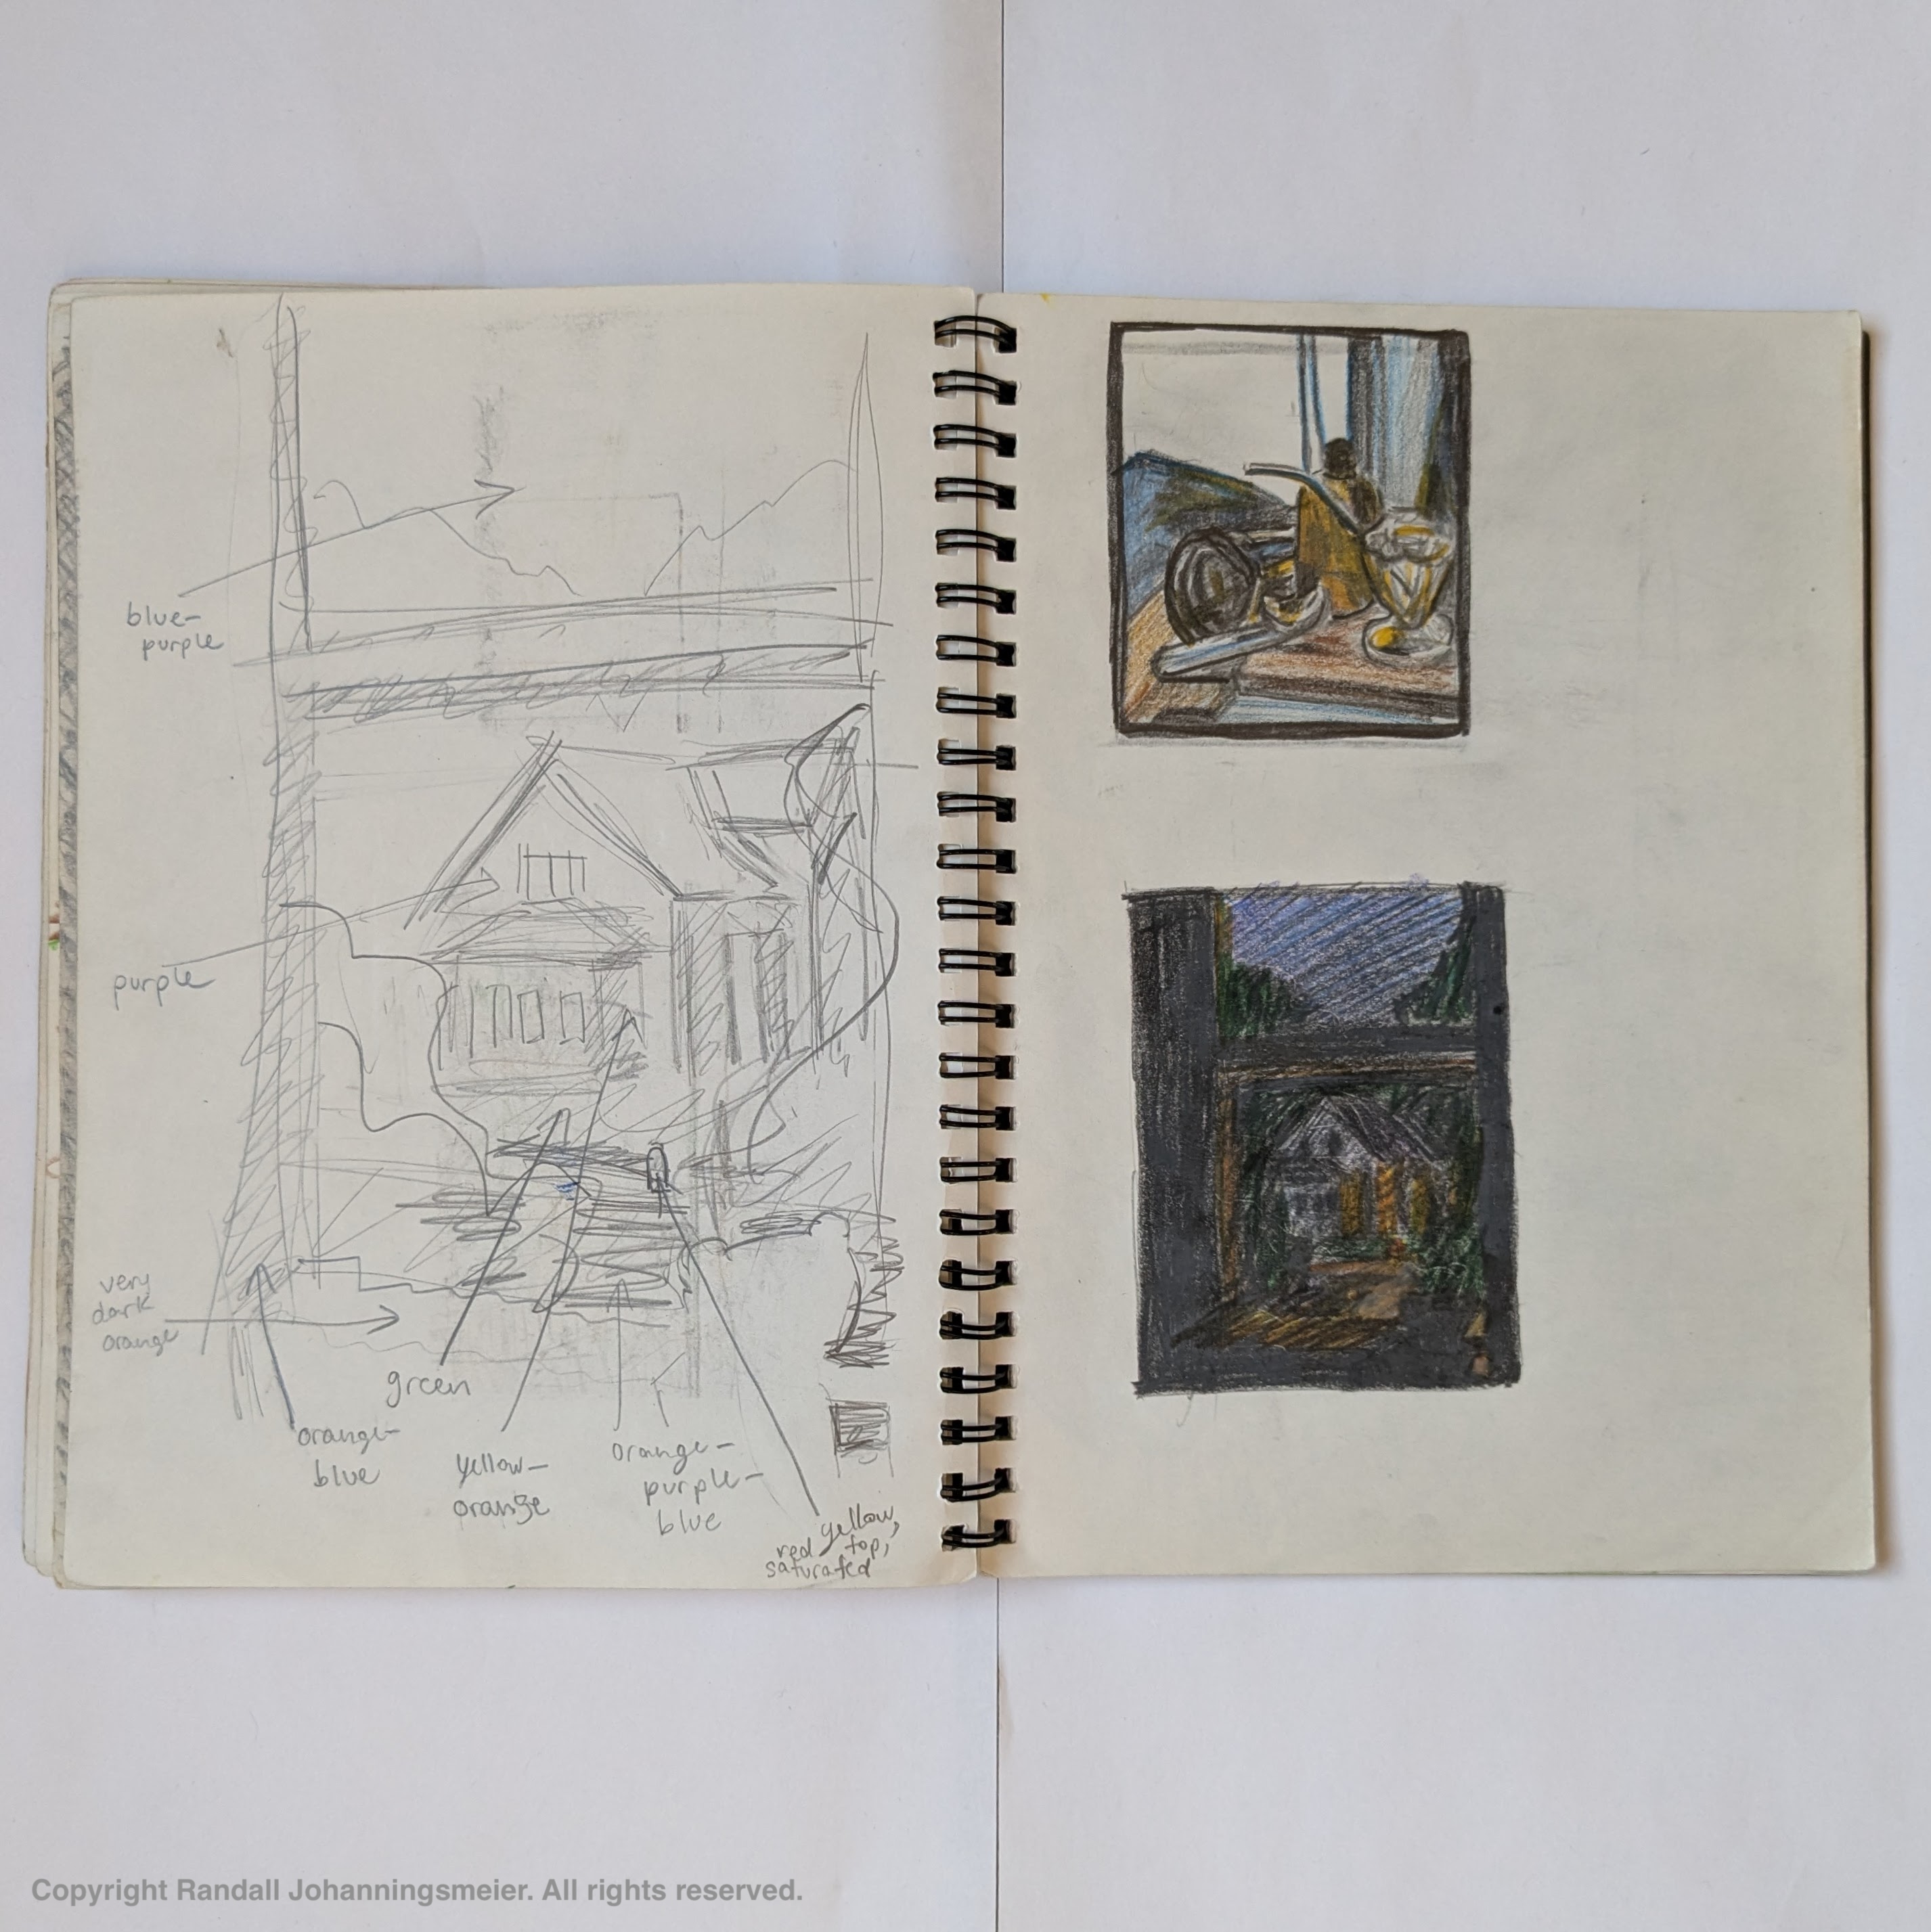 blue-
purple
purple
very
dark
orange
green
orange-
blue
yellow-
orange
orange-
purple-
blue
yellow,
red top,
saturated
Copyright Randall Johanningsmeier. All rights reserved.